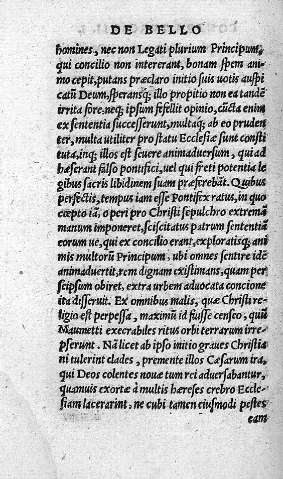 DE BELLO
homines, nec non Legati plurium Principum,
qui concilio non intererant, bonam spem ani
mo cepit, putans præclaro initio suis uotis auspi
catũ Deum, speransq́; illo propitio non ea tandẽ
irrita fore. neq; ipsum fefellit opinio, cũcta enim
ex sententia successerunt, multaq́; ab eo pruden
ter, multa utiliter pro statu Ecclesiæ sunt consti
tuta, inq; illos est seuere animaduersum, qui ad
hæserant falso pontifici, uel qui freti potentia le
gibus sacris libidinem suam præferebãt. Quibus
perfectis, tempus iam esse Pontifex ratus, in quo
cœpto iã, o peri pro Christi sepulchro extremã
manum imponeret, sciscitatus patrum sententiã
eorum ue, qui ex concilio erant, exploratisq́; ani
mis multorũ Principum, ubi omnes sentire idẽ
animaduertit, rem dignam existimans, quam per
seipsum obiret, extra urbem aduocata concione
ita disseruit. Ex omnibus malis, quæ Christi re
ligio est perpessa, maximũ id fuisse censeo, quũ
Maumetti execrabiles ritus orbi terrarum irre-
pserunt. Nã licet ab ipso initio graues Christia
ni tulerint clades, premente illos Cæsarum ira,
qui Deos colentes nouæ tum rei aduersabantur,
quamuis exortæ à multis hæreses crebro Eccle-
siam lacerarint, ne cubi tamen eiusmodi pestes
eam